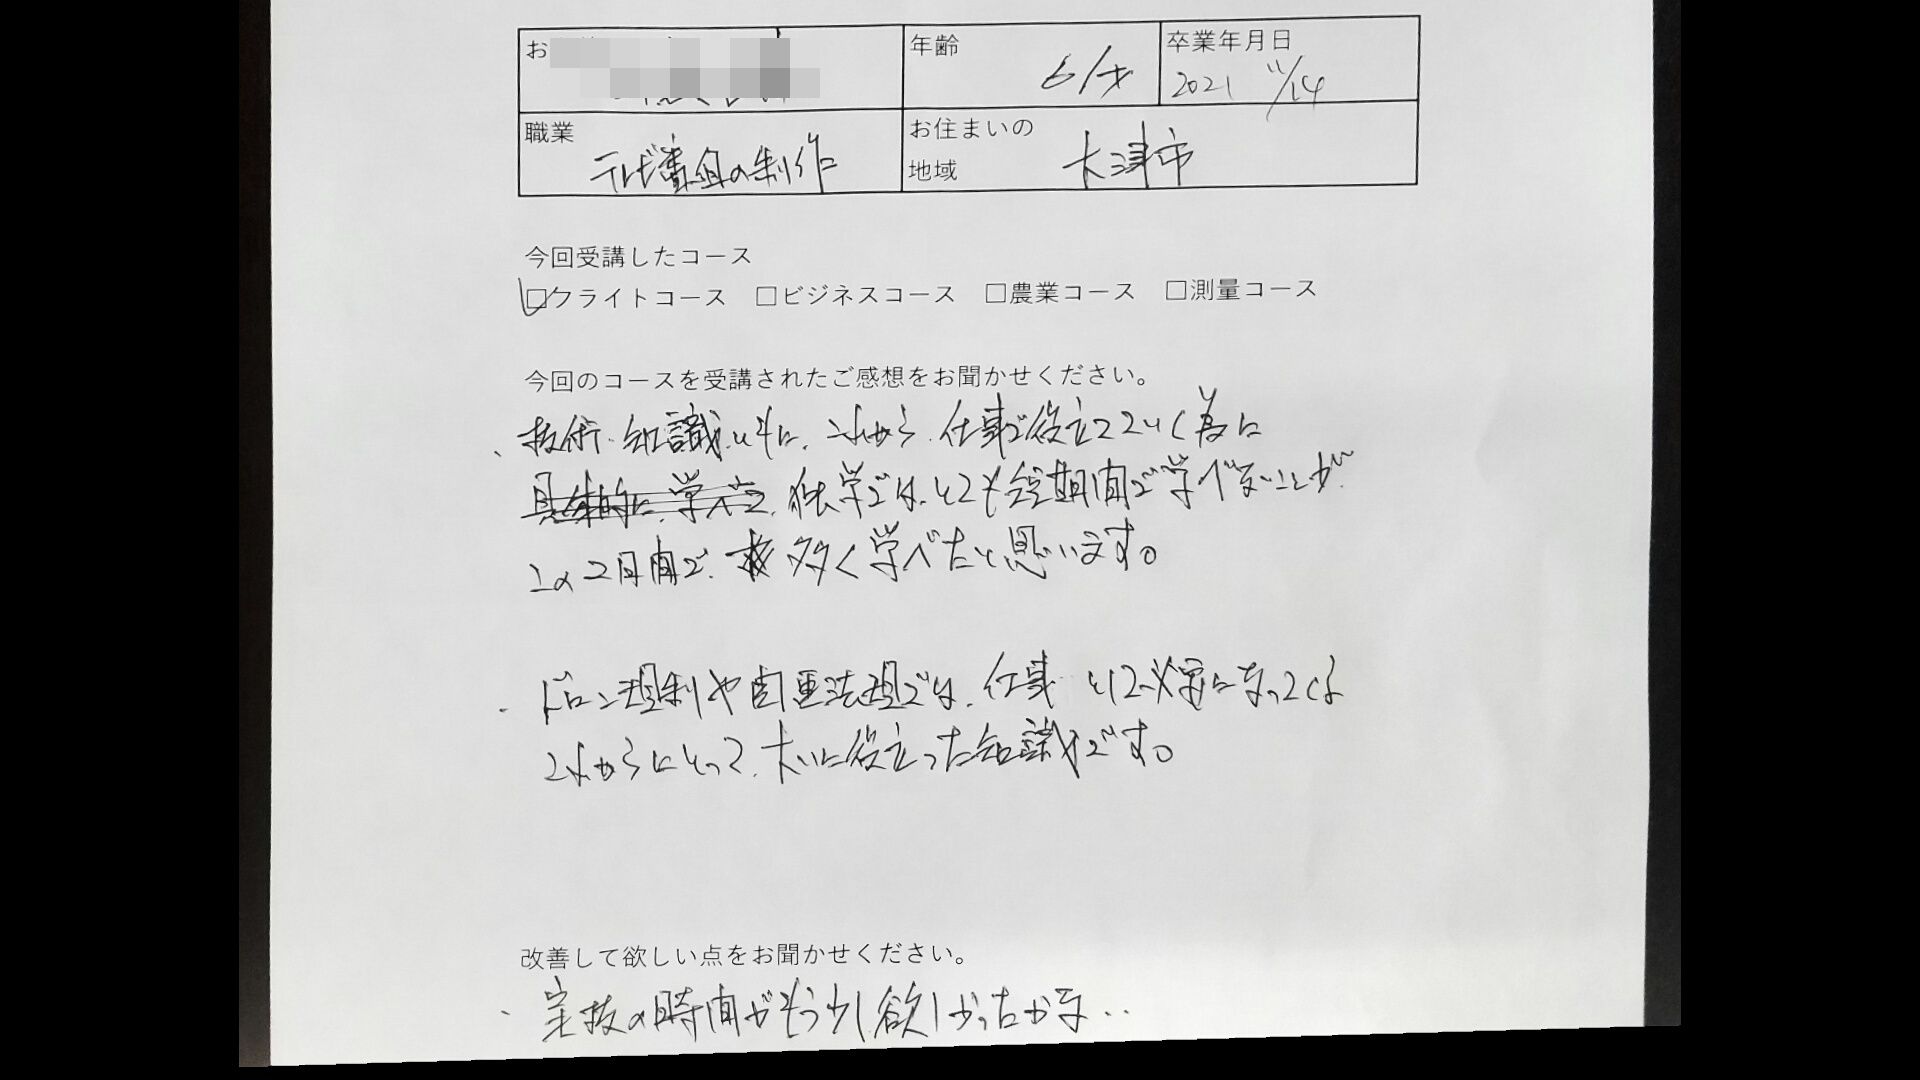 お
年齢
61才
卒業年月日
2021 11/14
職業
テレビ番組の制作
お住まいの
地域
大津市
今回受講したコース
□クライトコース □ビジネスコース □農業コース □測量コース
今回のコースを受講されたご感想をお聞かせください。
・技術・知識と共に、これから仕事で役立てていく為に
具体的に学べて、独学では、とても短期間で学べないことが
この2日間で、多く学べたと思います。
・ドローン規制や自重法規では、仕事として必要になってくる
これからにとって、大いに役立った知識です。
改善して欲しい点をお聞かせください。
・実技の時間がもう少し欲しかったかな・・